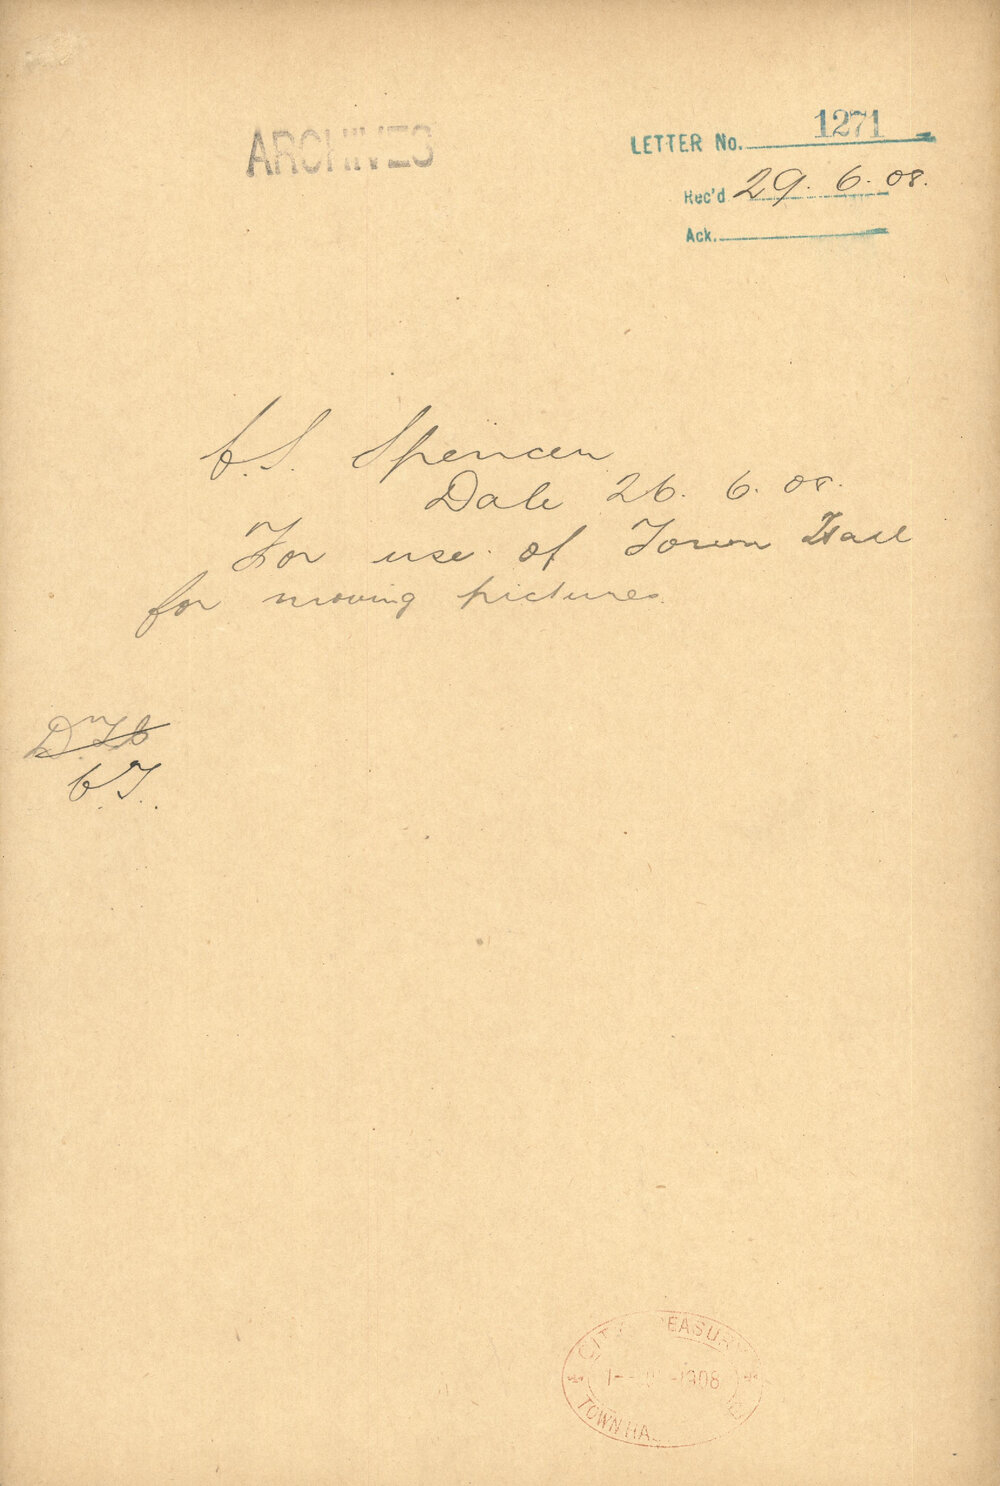 ARCHIVES
LETTER No. 1271
Rec'd 29. 6. 08.
Ack.
C.S. Spencer
Date 26. 6. 08.
For use of Town Hall
for moving pictures.
C.T.
CITY TREASURY
1908
TOWN HALL